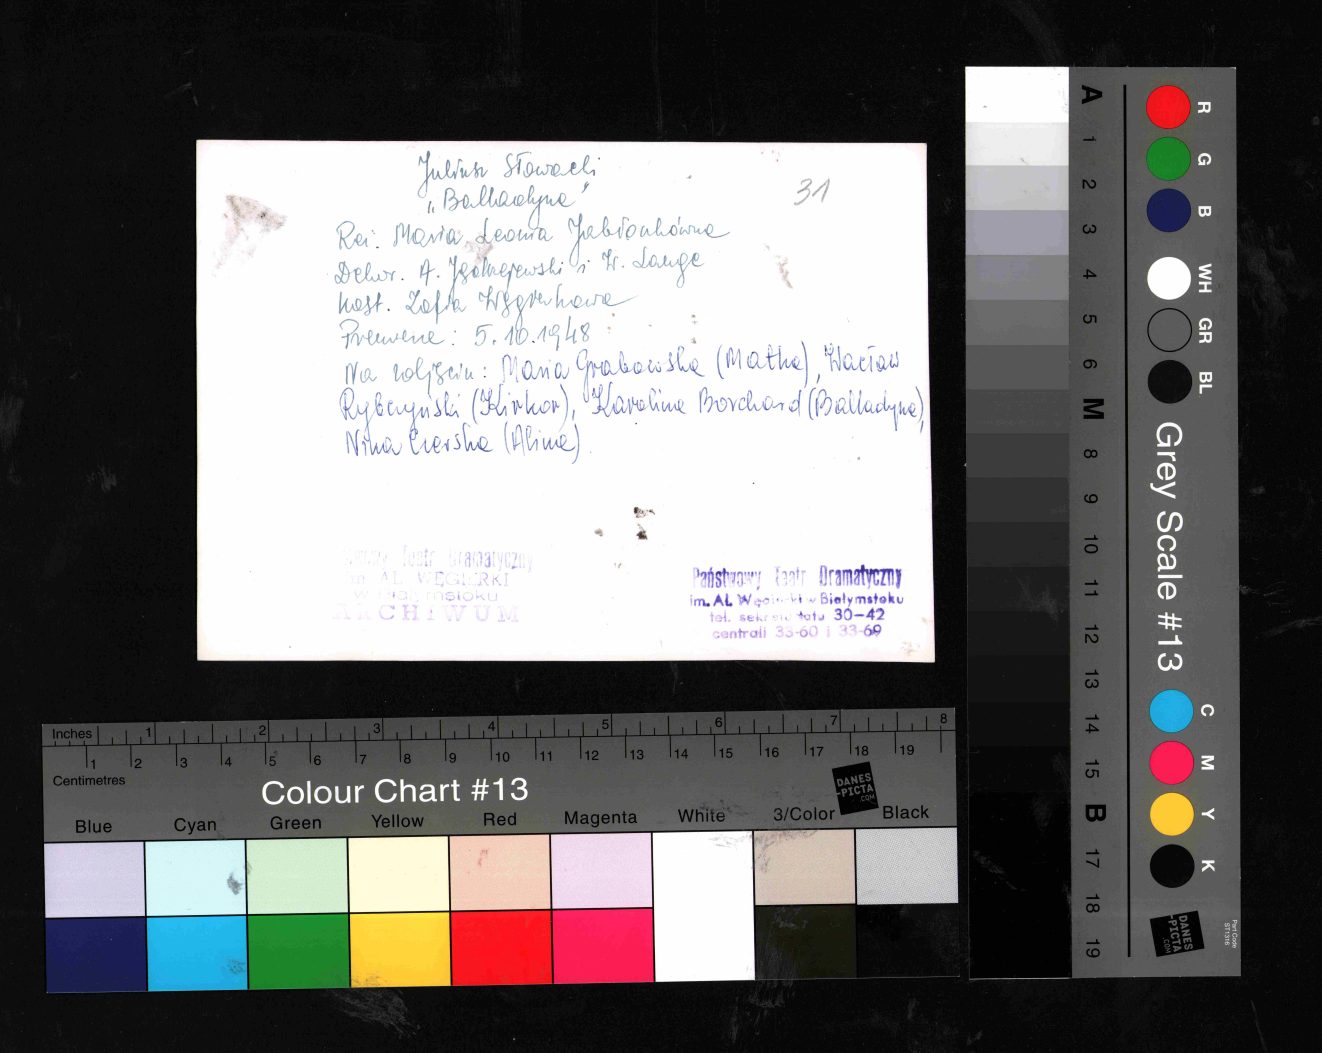 Juliusz Słowacki
„Balladyna"
31
Reż. Maria Leonia Jabłonkówna
Dekor. A. Jędrzejewski i W. Lange
kost. Zofia Węgierkowa
Premiera: 5.10.1948
Na zdjęciu: Maria Grabowska (Matka), Wacław
Rybczyński (Kirkor), Karolina Borchard (Balladyna),
Nina Czerska (Alina)
Teatr Dramatyczny
im. AL. WĘGIERKI
w Białymstoku
ARCHIWUM
Państwowy Teatr Dramatyczny
im. Al. Węgierki w Białymstoku
tel. sekretariatu 30-42
centrali 33-60 i 33-69
Inches 1 2 3 4 5 6 7 8
1 2 3 4 5 6 7 8 9 10 11 12 13 14 15 16 17 18 19
Centimetres
Colour Chart #13
DANES
-PICTA
.COM
Blue Cyan Green Yellow Red Magenta White 3/Color Black
A 1 2 3 4 5 6 M 8 9 10 11 12 13 14 15 B 17 18 19
R G B WH GR BL
Grey Scale #13
C M Y K
DANES
-PICTA
.COM
Part Code
ST1316